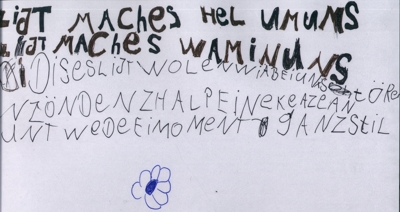 LIDT MACHES HEL UMUNS
LIDT MACHES WAMINUNS
DISESLIDT WOLENWIABEIUNS HÖREN
NZÖNDENZHALPEINEKEAZEAN
UNTWEDEEIMOMENT GANZSTIL